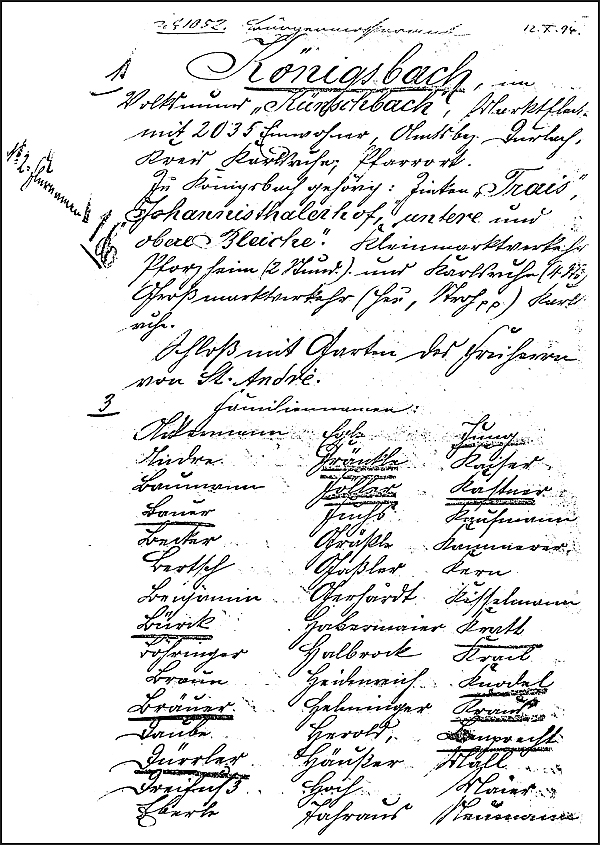 1052. Bürgermeisteramt 12.X.94.
1) Königsbach, im
Volksmund „Künschbach", Marktfleck-
mit 2035 Einwohner, Amtsbez. Durlach,
Kreis Karlsruhe, Pfarrort.
2. Flurnamen
Zu Königsbach gehörig: Zinken „Trais",
Johannisthalerhof, untere und
obere Bleiche". Kleinmarktverkehr
Pforzheim (2 Stund.) und Karlsruhe (4 St.)
Großmarktverkehr (Heu, Stroh pp) Karls-
ruhe.
Schloß mit Garten des Freiherrn
von St. André.
3 Familiennamen:
Ackermann Egle Jung
Andre Fränkle Kaiser
Baumann Kastner
Bauer Fuchs Kaufmann
Becker Gräßle Kammerer
Bertsch Gaßler Kern
Benjamin Gerhardt Kisselmann
Bürck Habermaier Kratt
Böhringer Halbrock Krail
Braun Heidenreich Knodel
Bräuer Helminger Kraus
Daube Herold, Lamprecht
Dürrler Häußler Mall
Dreifuß Hoch Maier
Eberle Jahraus Neumann